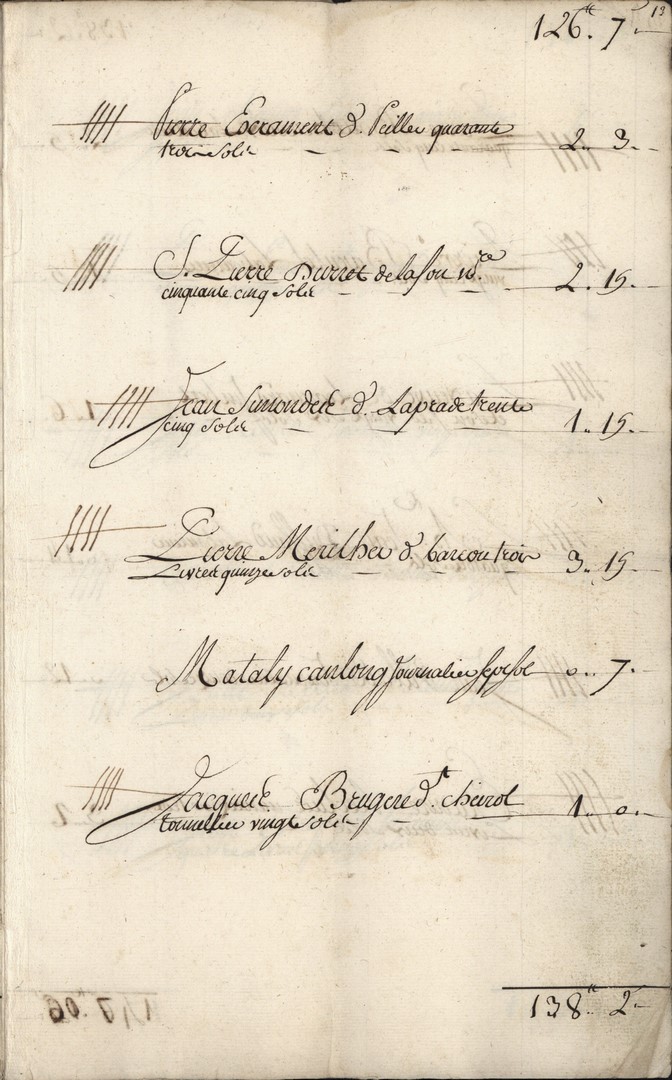 13
126.tt 7.
Pierre Escrament d. Peilles quarante
trois solz 2.. 3.
S. Pierre Durret delafon n.re
cinquante cinq solz 2. 15.
Jean Simondet d. Laprade trente
cinq solz 1.. 15.
Pierre Merilhes d. barcou trois
Livres quinze solz 3.. 15
Mataly canlong Journalier sept sol 0.. 7.
Jacques Brugere d.t
tonnellier vingt solz 1.. 0..
138.tt 2